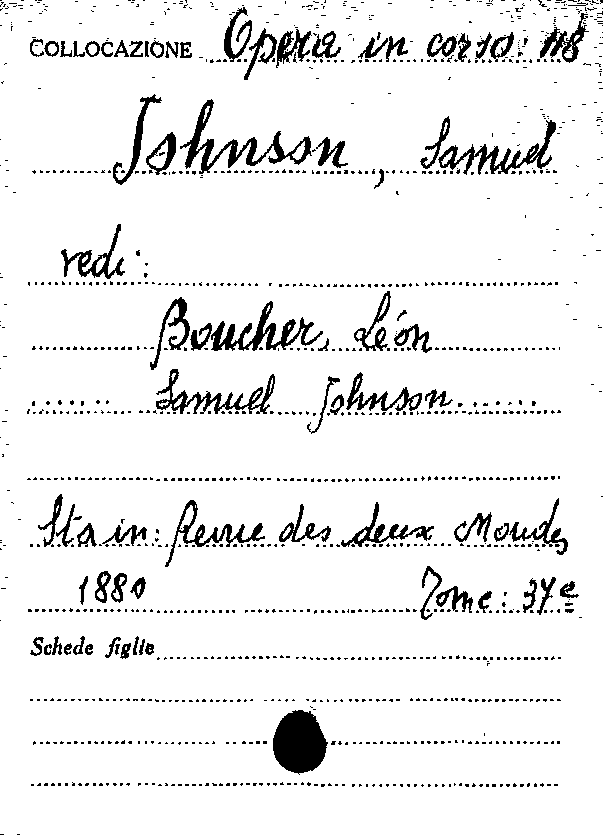 COLLOCAZIONE Opera in corso: 118
Johnson, Samuel
vedi:
Boucher, Léon
....... Samuel Johnson.......
Sta in: Revue des deux Mondes
1880 Tome: 37e
Schede figlie